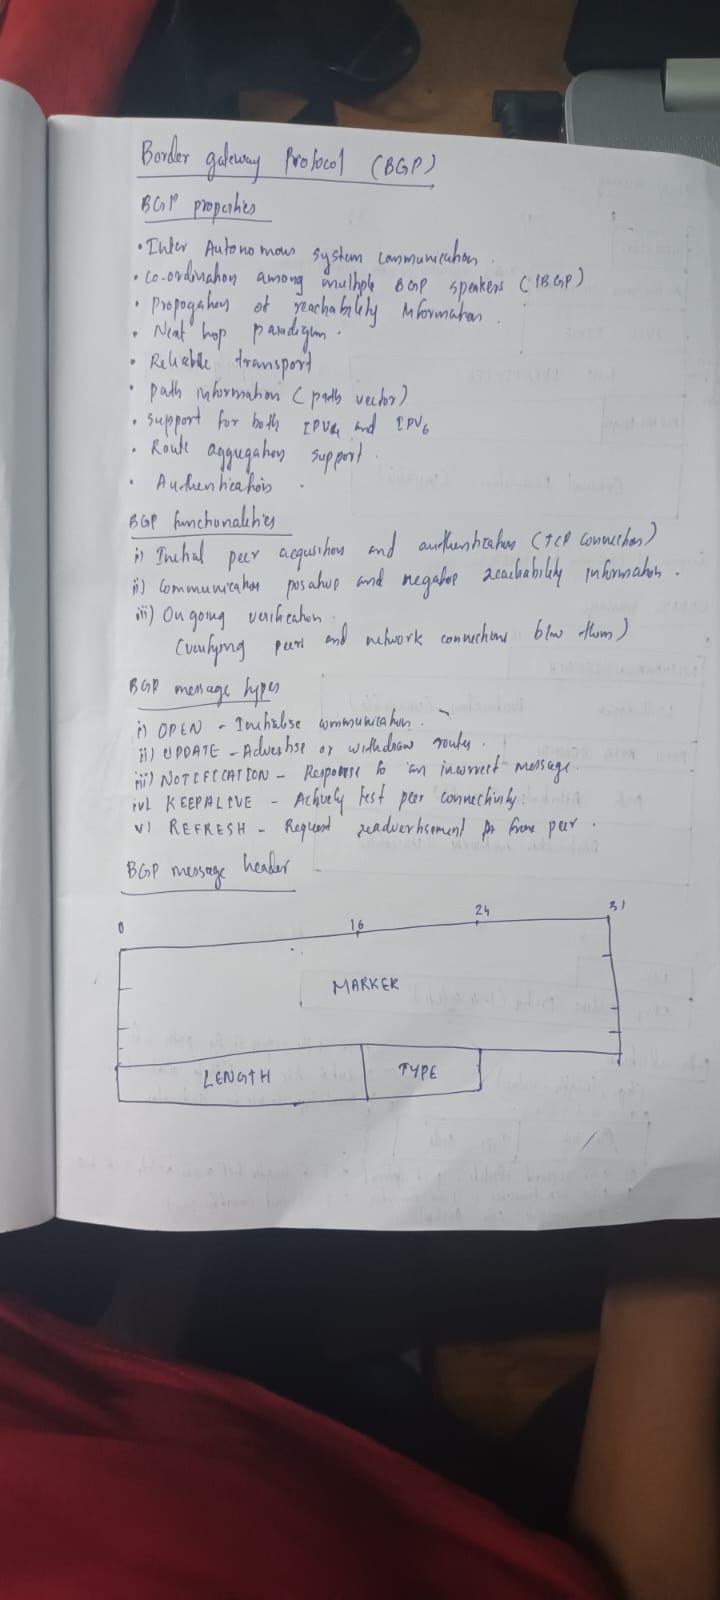 Border gateway Protocol (BGP)
BGP properties
• Inter Autonomous system communication.
• Co-ordination among multiple BGP speakers (IBGP)
• Propogation of reachability information.
• Next hop paradigm.
• Reliable transport
• path information (path vector)
• support for both IPV4 and IPV6
• Route aggregation support.
• Authentication.
BGP functionalities
i) Initial peer acqusition and authentication (TCP connection)
ii) Communication positive and negative reachability information.
iii) Ongoing verification.
(verifying peers and network connections b/w them)
BGP message types
i) OPEN - Initialise communication.
ii) UPDATE - Advertise or withdraw routes.
iii) NOTIFICATION - Response to an incorrect message.
iv) KEEPALIVE - Actively test peer connectivity.
v) REFRESH - Request readvertisement from peer.
BGP message header
0 16 24 31
MARKER
LENGTH TYPE